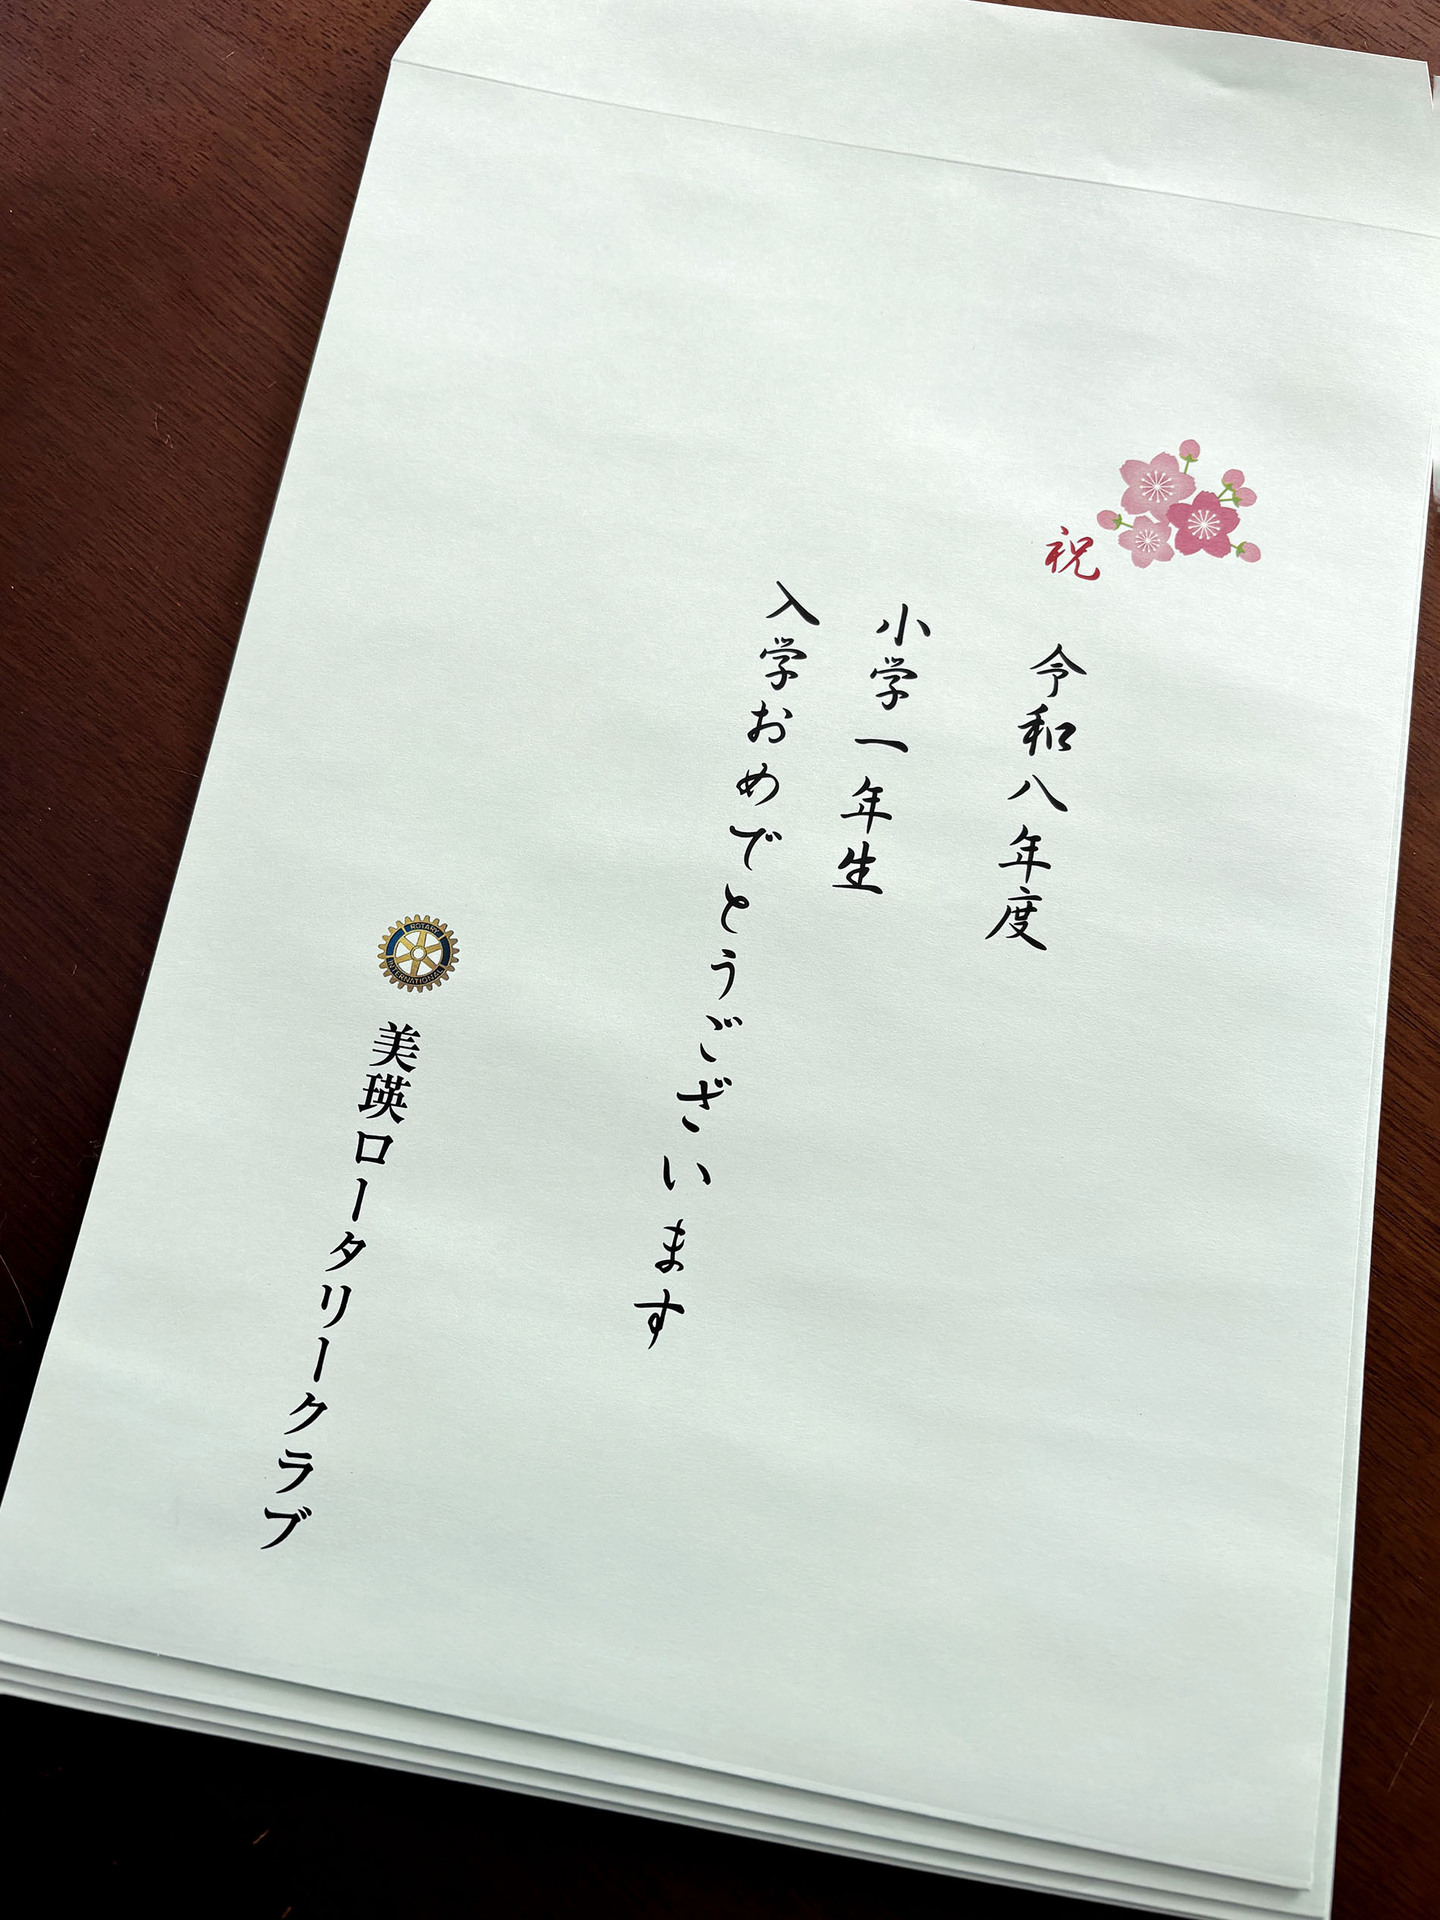 祝
令和八年度
小学一年生
入学おめでとうございます
ROTARY
INTERNATIONAL
美瑛ロータリークラブ